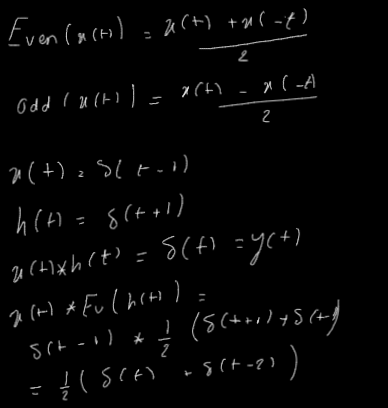 Even(x(t)) = x(t) + x(-t) / 2
odd(x(t)) = x(t) - x(-t) / 2
x(t) = δ(t-1)
h(t) = δ(t+1)
x(t)*h(t) = δ(t) = y(t)
x(t) * Ev(h(t)) =
δ(t-1) * 1/2 (δ(t+1)+δ(t
= 1/2 (δ(t) + δ(t-2))